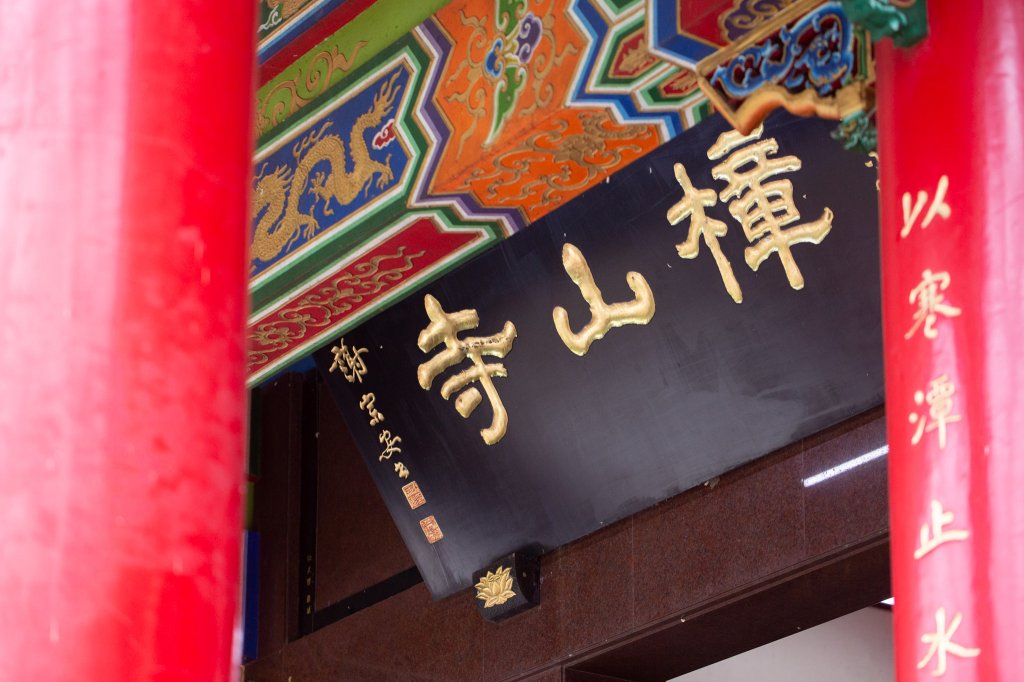 樟山寺
謝宗安書
以寒潭止水